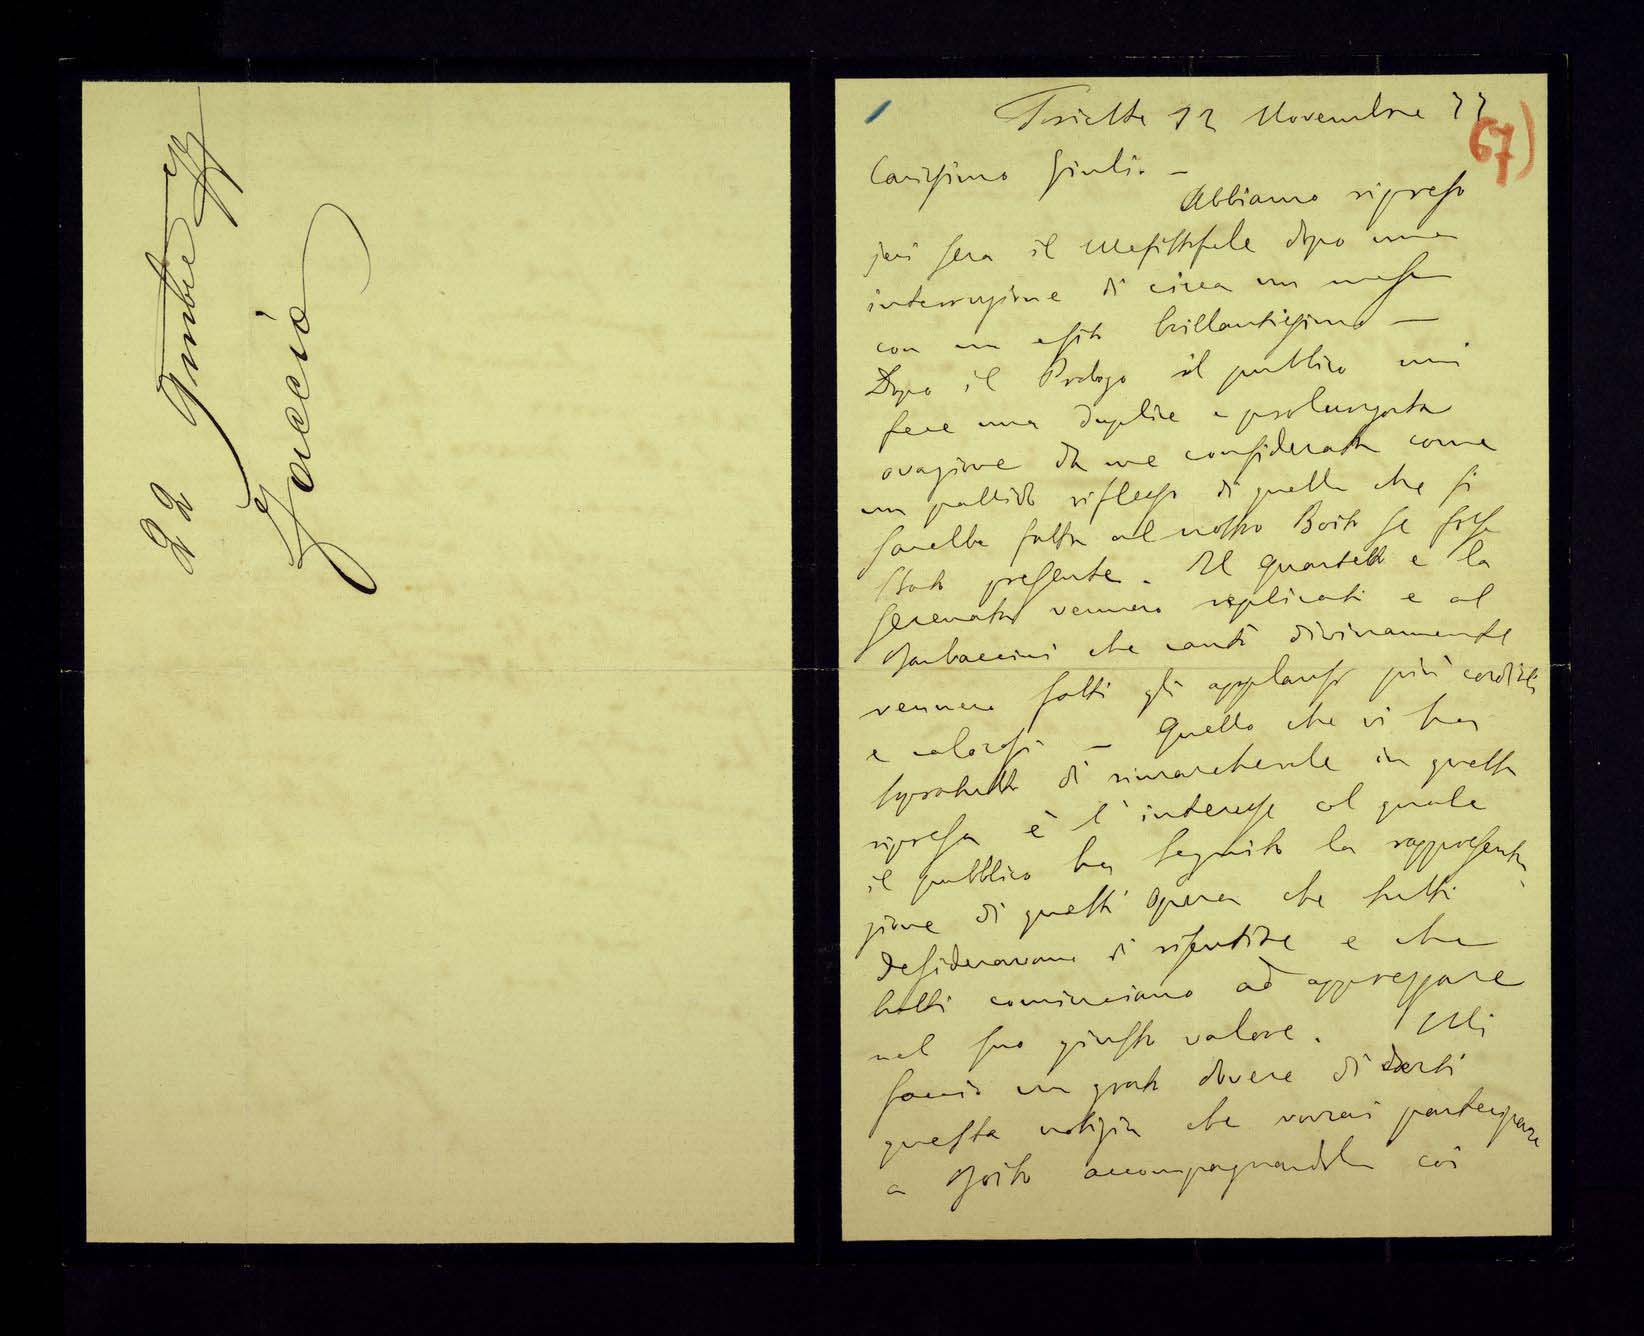 22 9mbre 77
Faccio
Trieste 12 Novembre 77
67)
Carissimo Giulio –
Abbiamo ripreso
jeri sera il Mefistofele dopo una
interruzione di circa un mese
con un esito brillantissimo —
Dopo il Prologo il pubblico mi
fece una duplice e prolungata
ovazione da me considerata come
un pallido riflesso di quella che si
sarebbe fatta al nostro Boito se fosse
stato presente. Il quartetto e la
serenata vennero replicati e al
Barbaccini che cantò divinamente
vennero fatti gli applausi più cordiali
e calorosi – Quello che vi ha
sopratutto di rimarchevole in questa
ripresa è l'interesse col quale
il pubblico ha seguito la rappresenta
zione di questa opera che tutti
desideravano di risentire e che
tutti cominciano ad apprezzare
nel suo giusto valore. Mi
faccio un grato dovere di darti
questa notizia che vorrai partecipare
a Boito accompagnandola coi